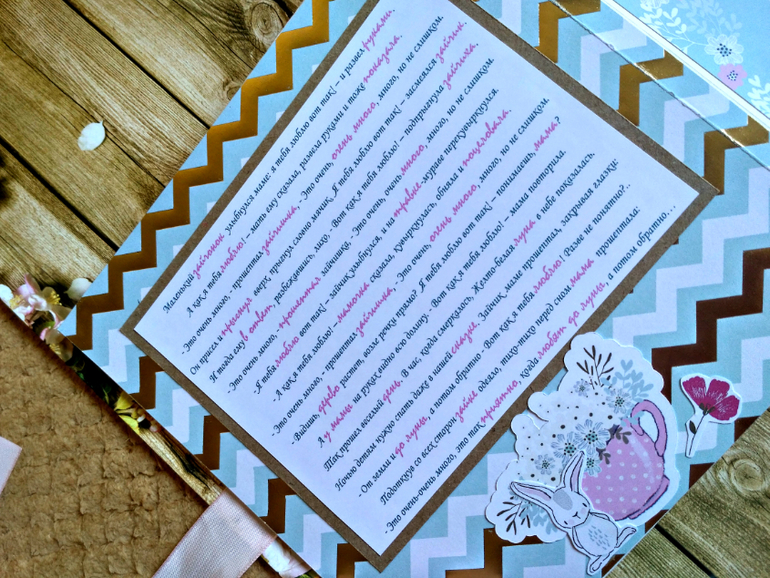 Маленький зайчонок улыбнулся маме: я тебя люблю вот так! – и развел руками.
А как я тебя люблю! – мать ему сказала, развела руками и тоже показала.
- Это очень много, - прошептал зайчишка, - Это очень, очень много, много, но не слишком.
Он присел и прыгнул вверх, прыгнул словно мячик, Я тебя люблю вот так! – засмеялся зайчик.
И тогда ему в ответ, разбежавшись, лихо, - Вот как я тебя люблю! – подпрыгнула зайчиха.
- Это очень много, - прошептал зайчишка, - Это очень, очень много, много, но не слишком.
- Я тебя люблю вот так! – зайчик улыбнулся, и на травке-мураве перекувыркнулся.
- А как я тебя люблю! – мамочка сказала, кувыркнулась, обняла и поцеловала.
- Это очень много, - прошептал зайчишка, - Это очень, очень много, много, но не слишком.
- Видишь, дерево растет, возле речки прямо? Я тебя люблю вот так! – понимаешь, мама?
А у мамы на руках видно всю долину. - Вот как я тебя люблю! – мама повторила.
Так прошел веселый день. В час, когда смеркалось, Желто-белая луна в небе показалась.
Ночью детям нужно спать даже в нашей сказке. Зайчик маме прошептал, закрывая глазки:
- От земли и до луны, а потом обратно – Вот как я тебя люблю! Разве не понятно?..
Подоткнув со всех сторон зайке одеяло, тихо-тихо перед сном мама прошептала:
- Это очень-очень много, это так приятно, когда любят до луны, а потом обратно...